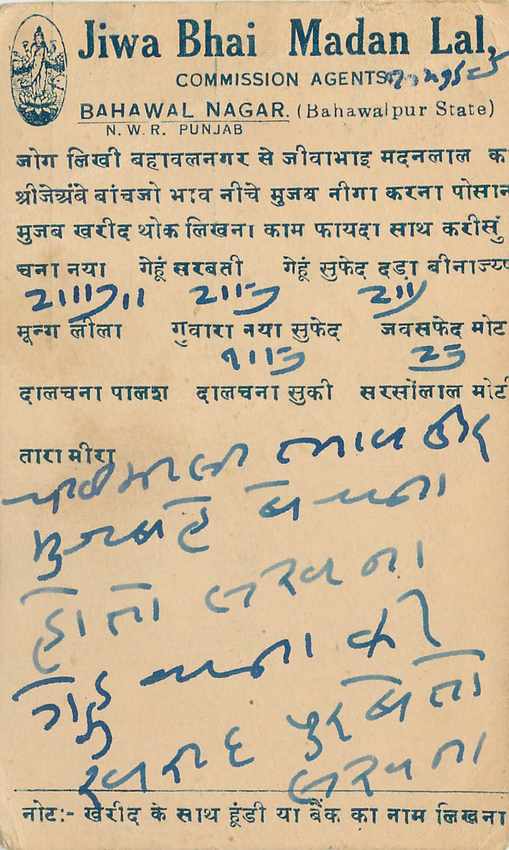 Jiwa Bhai Madan Lal,
COMMISSION AGENTS
BAHAWAL NAGAR. (Bahawalpur State)
N. W. R. PUNJAB
जोग लिखी बहावलनगर से जीवाभाइ मदनलाल क
श्रीजेअंबे बांचजो भाव नीचे मुजब नीगा करना पोसान
मुजब खरीद थोक लिखना काम फायदा साथ करीसुं
चना नया गेहूं सरबती गेहूं सुफेद दड़ा
२111)11 २11)
मून्ग लीला गुवारा नया सुफेद जवसफेद मोट
दालचना पालश दालचना सुकी सरसोंलाल मोटी
तारा मीरा
भाव ठीक
है बेचना
हो तो लखना
गेहु चना की
खरीद तो
लखना
नोट:- खरीद के साथ हूंडी या बैंक का नाम लिखना